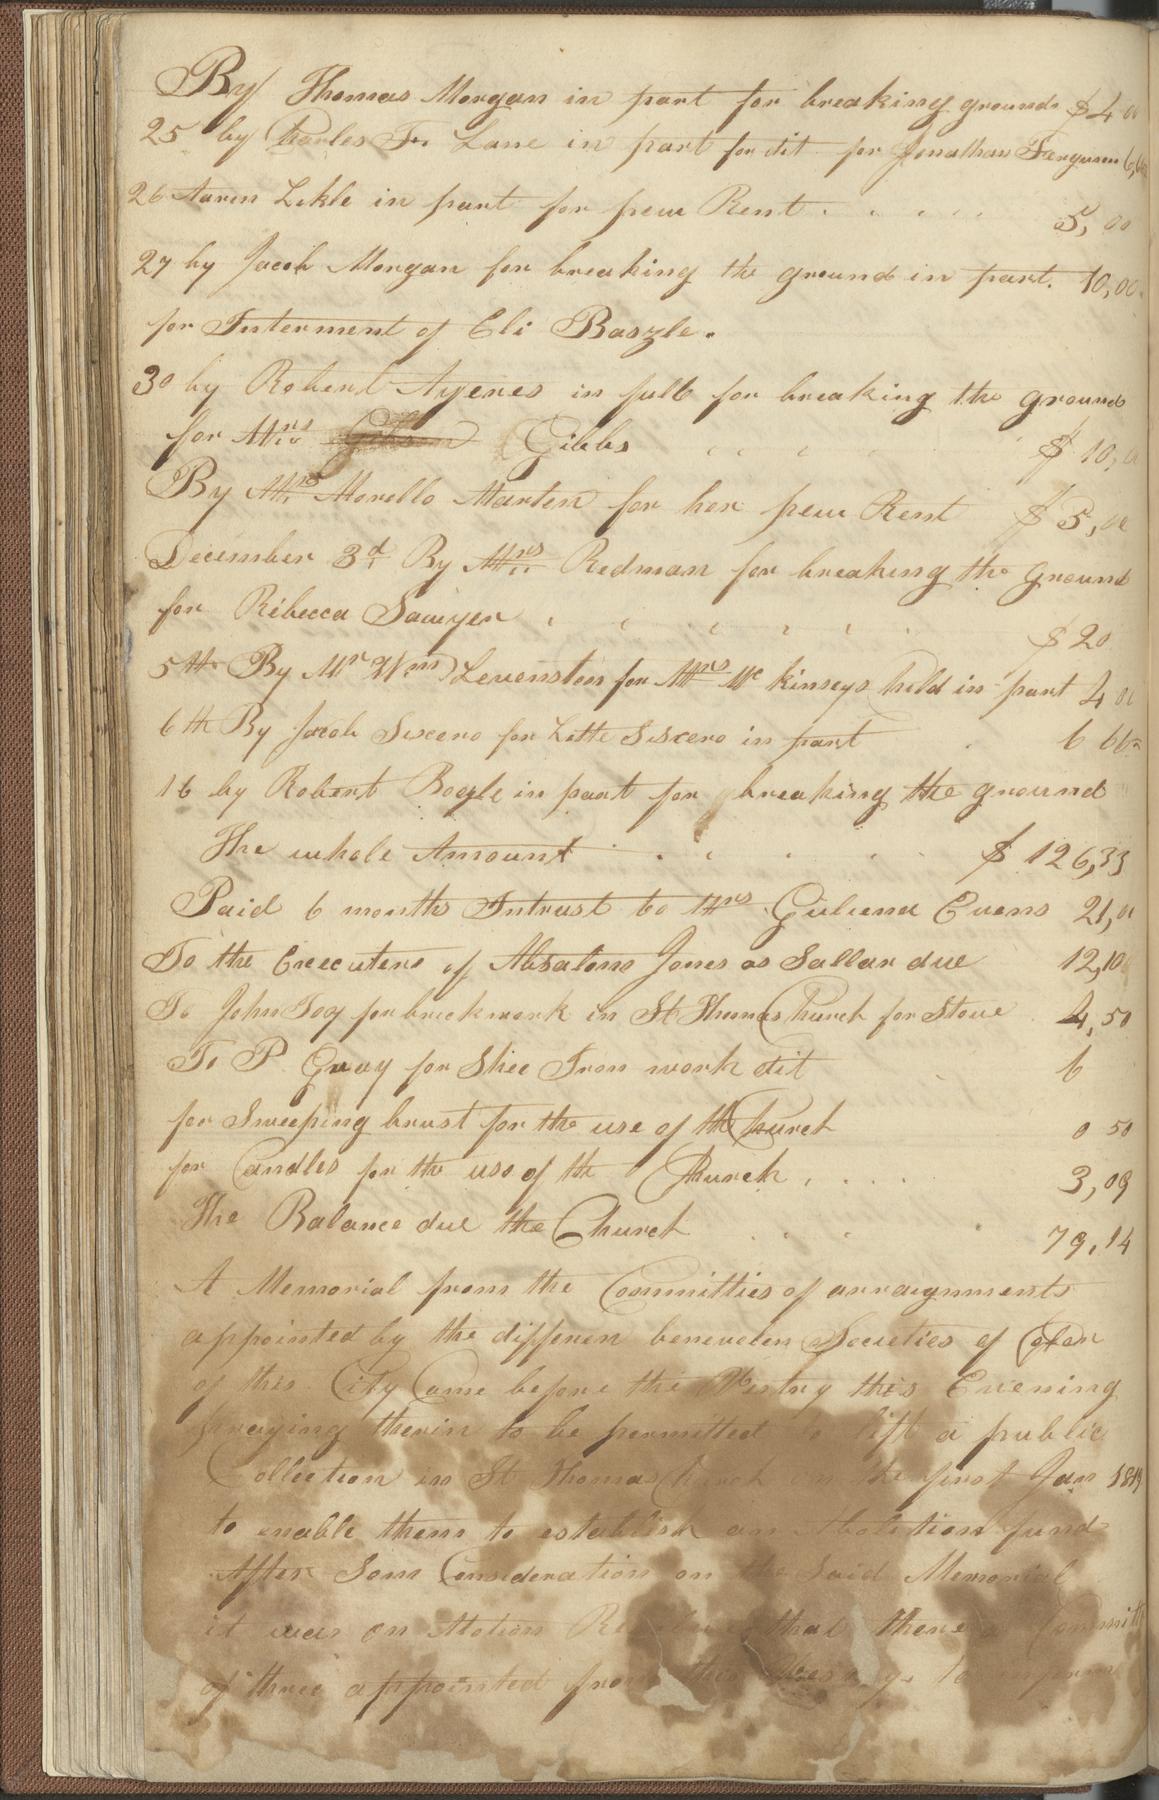 By Thomas Morgan in part for breaking ground $4 00
25 by Charles Fr Lane in part for dit for Jonathan Ferguson 6,66
26 Aaron Lekle in part for pew Rent 5,00
27 by Jacob Morgan for breaking the ground in part. 10,00
for Interment of Eli Baszle.
30 by Robert Ayeres in full for breaking the ground
for Mrs Gibbs $ 10,00
By Mrs Morello Marten for her pew Rent $ 5,00
December 3d By Mrs Redman for breaking the ground
for Ribecca Sawyer $ 20
5th By Mr Wm Levenston for Mrs Mc kinseys Child in part 4 00
6th By Jacob Siscero for Lette Siscero in part 6 66
16 by Robert Bogle in part for breaking the ground
The whole Amount $ 126,33
Paid 6 months Intrust to Mrs Guliena Evens 21,00
To the Executers of Absalom Jones as Sallar due 12,10
To John Joy for brickwork in St Thomas Church for Stove 4,50
To P. Gray for Shee Iron work dit 6
for Sweeping brust for the use of the Church 0 50
for Candles for the use of the Church 3,09
The Balance due the Church 79,14
A Memorial from the Committies of arraignments
appointed by the differen benevelen Societies of Colar
of this City Came before the Vestry this Evening
praying therin to be permitted to lift a public
Collection in St Thomas Church on the first Jan
to enable them to establish an Abolition fund
After Som Consideration on the Said Memorial
it was on Motion that there a Committ
of three appointed from this to inform